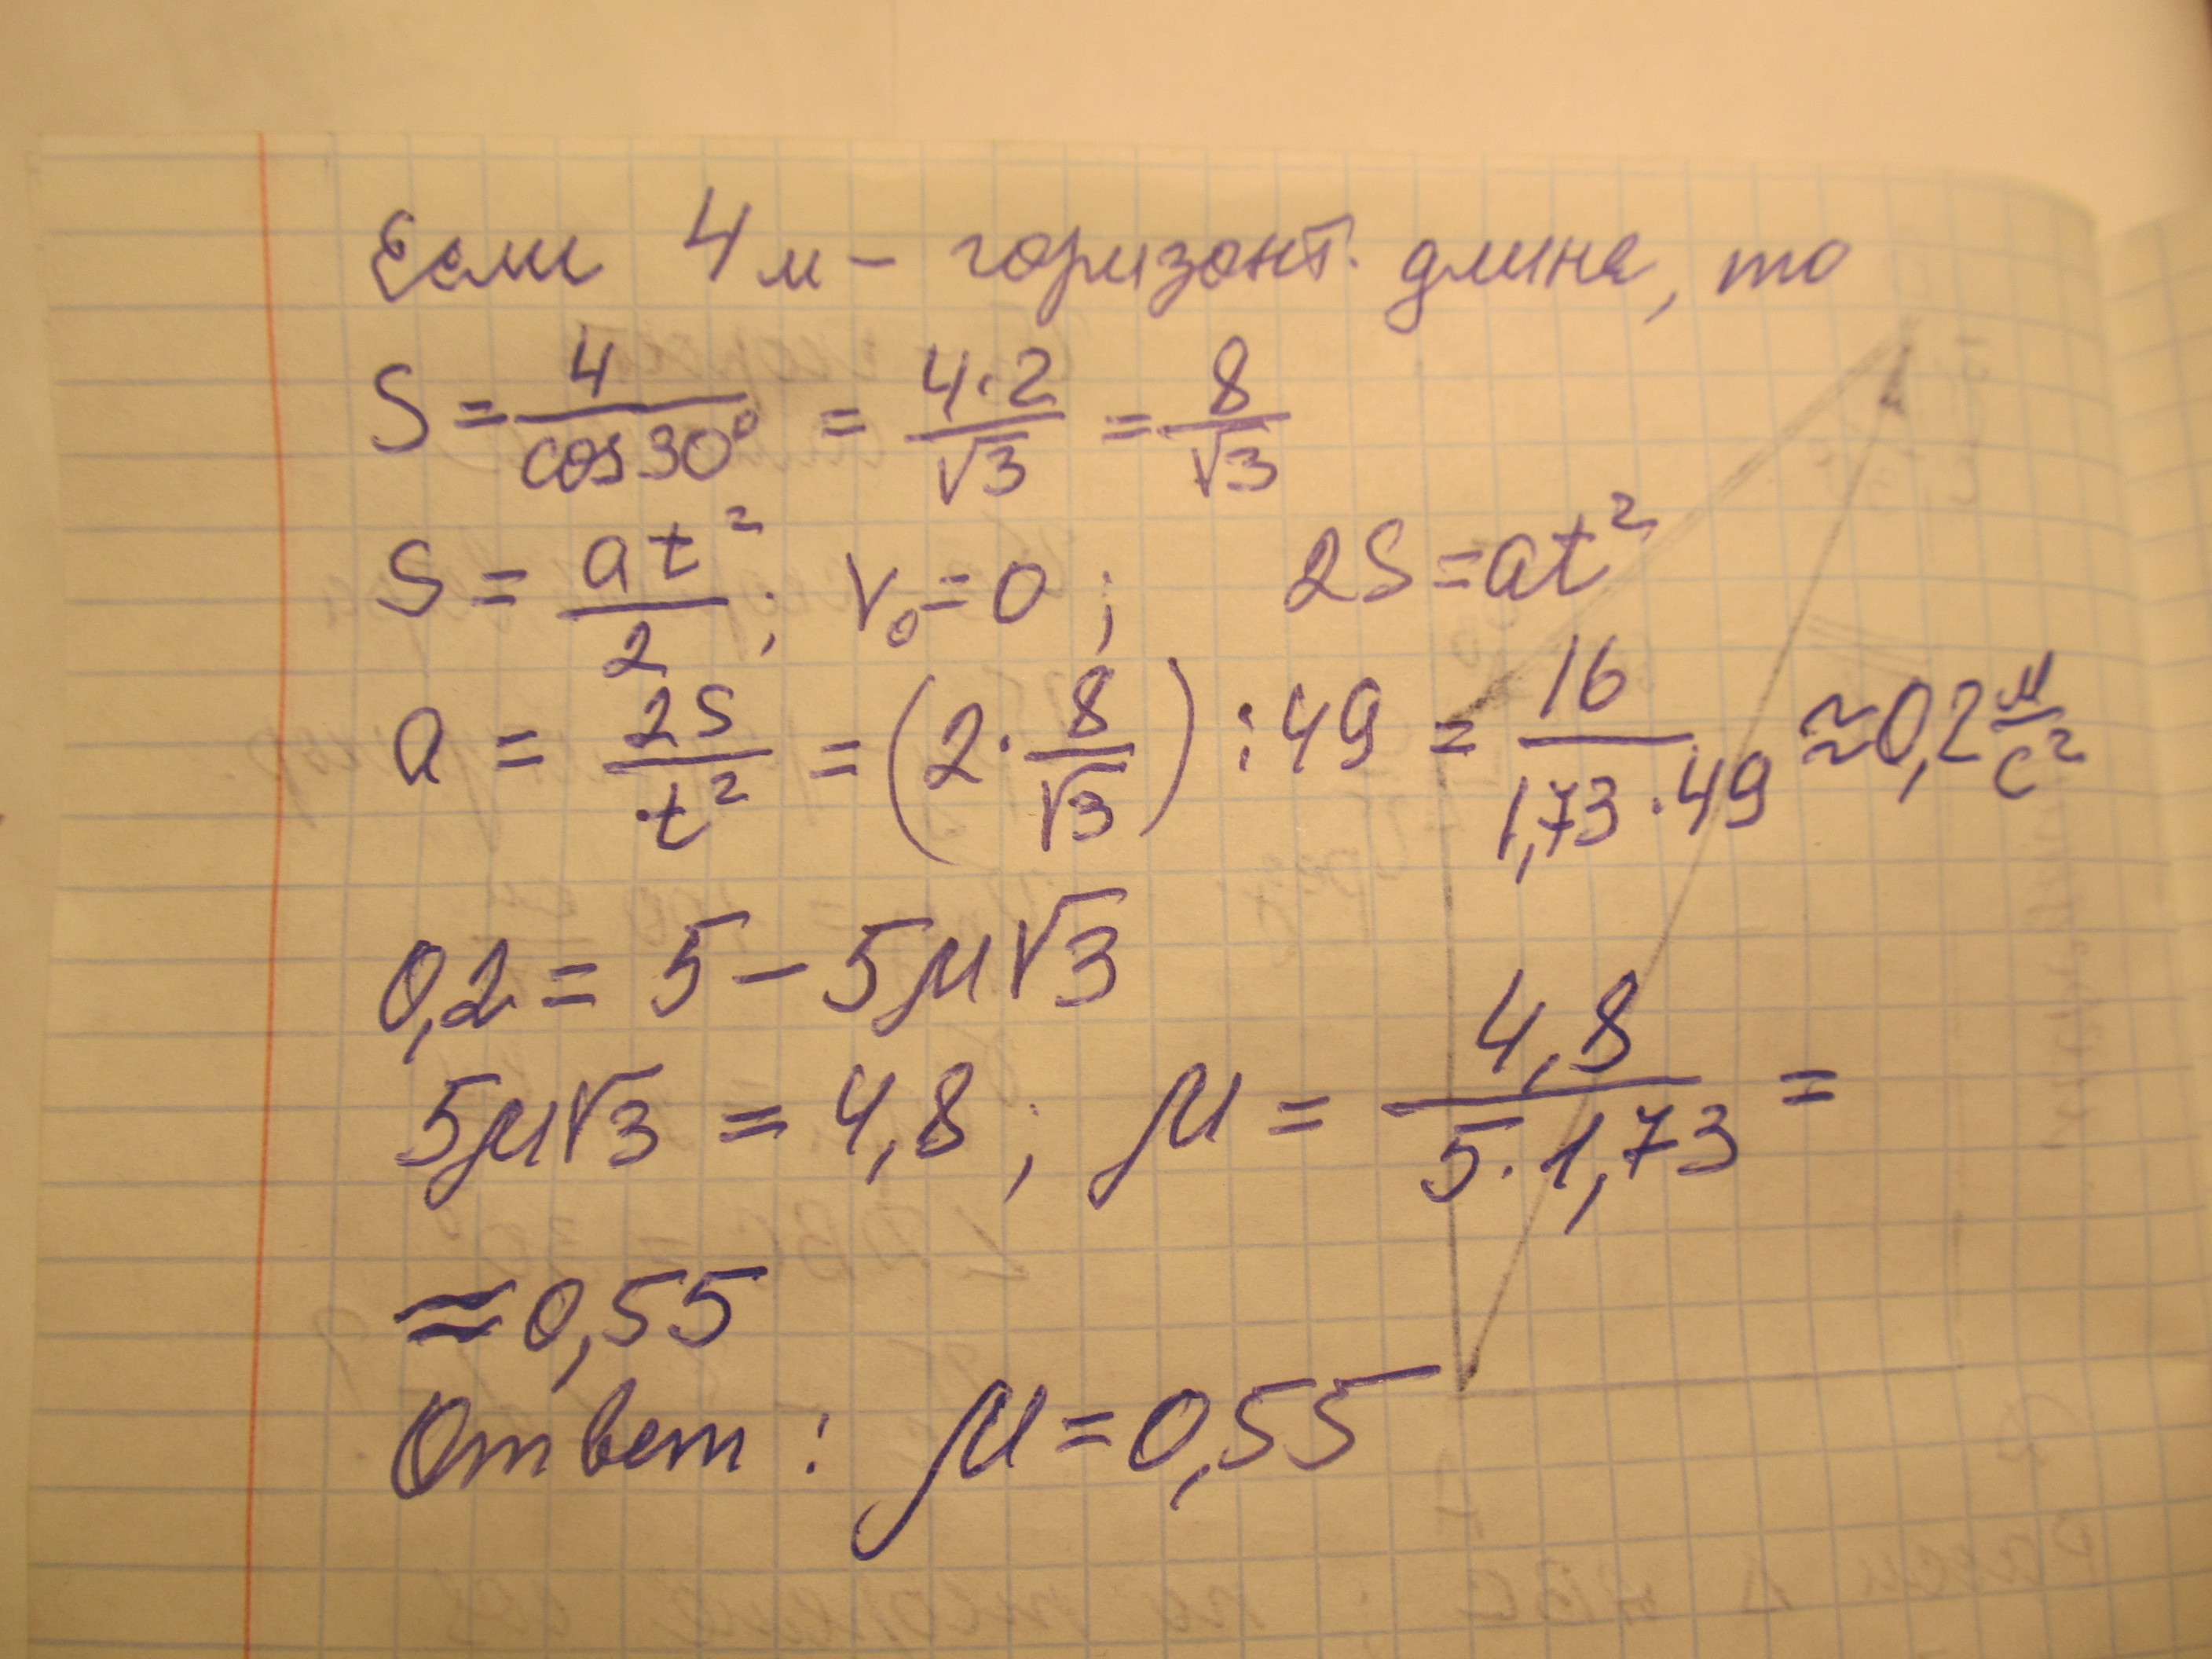 Если 4м – горизонт. длина, то
S = 4/cos30° = 4·2/√3 = 8/√3
S = at²/2; v₀=0; 2S=at²
a = 2S/t² = (2·8/√3) : 49 = 16/1,73·49 ≈0,2 м/с²
0,2 = 5 – 5μ√3
5μ√3 = 4,8; μ = 4,8/5·1,73 =
≈0,55
Ответ: μ=0,55